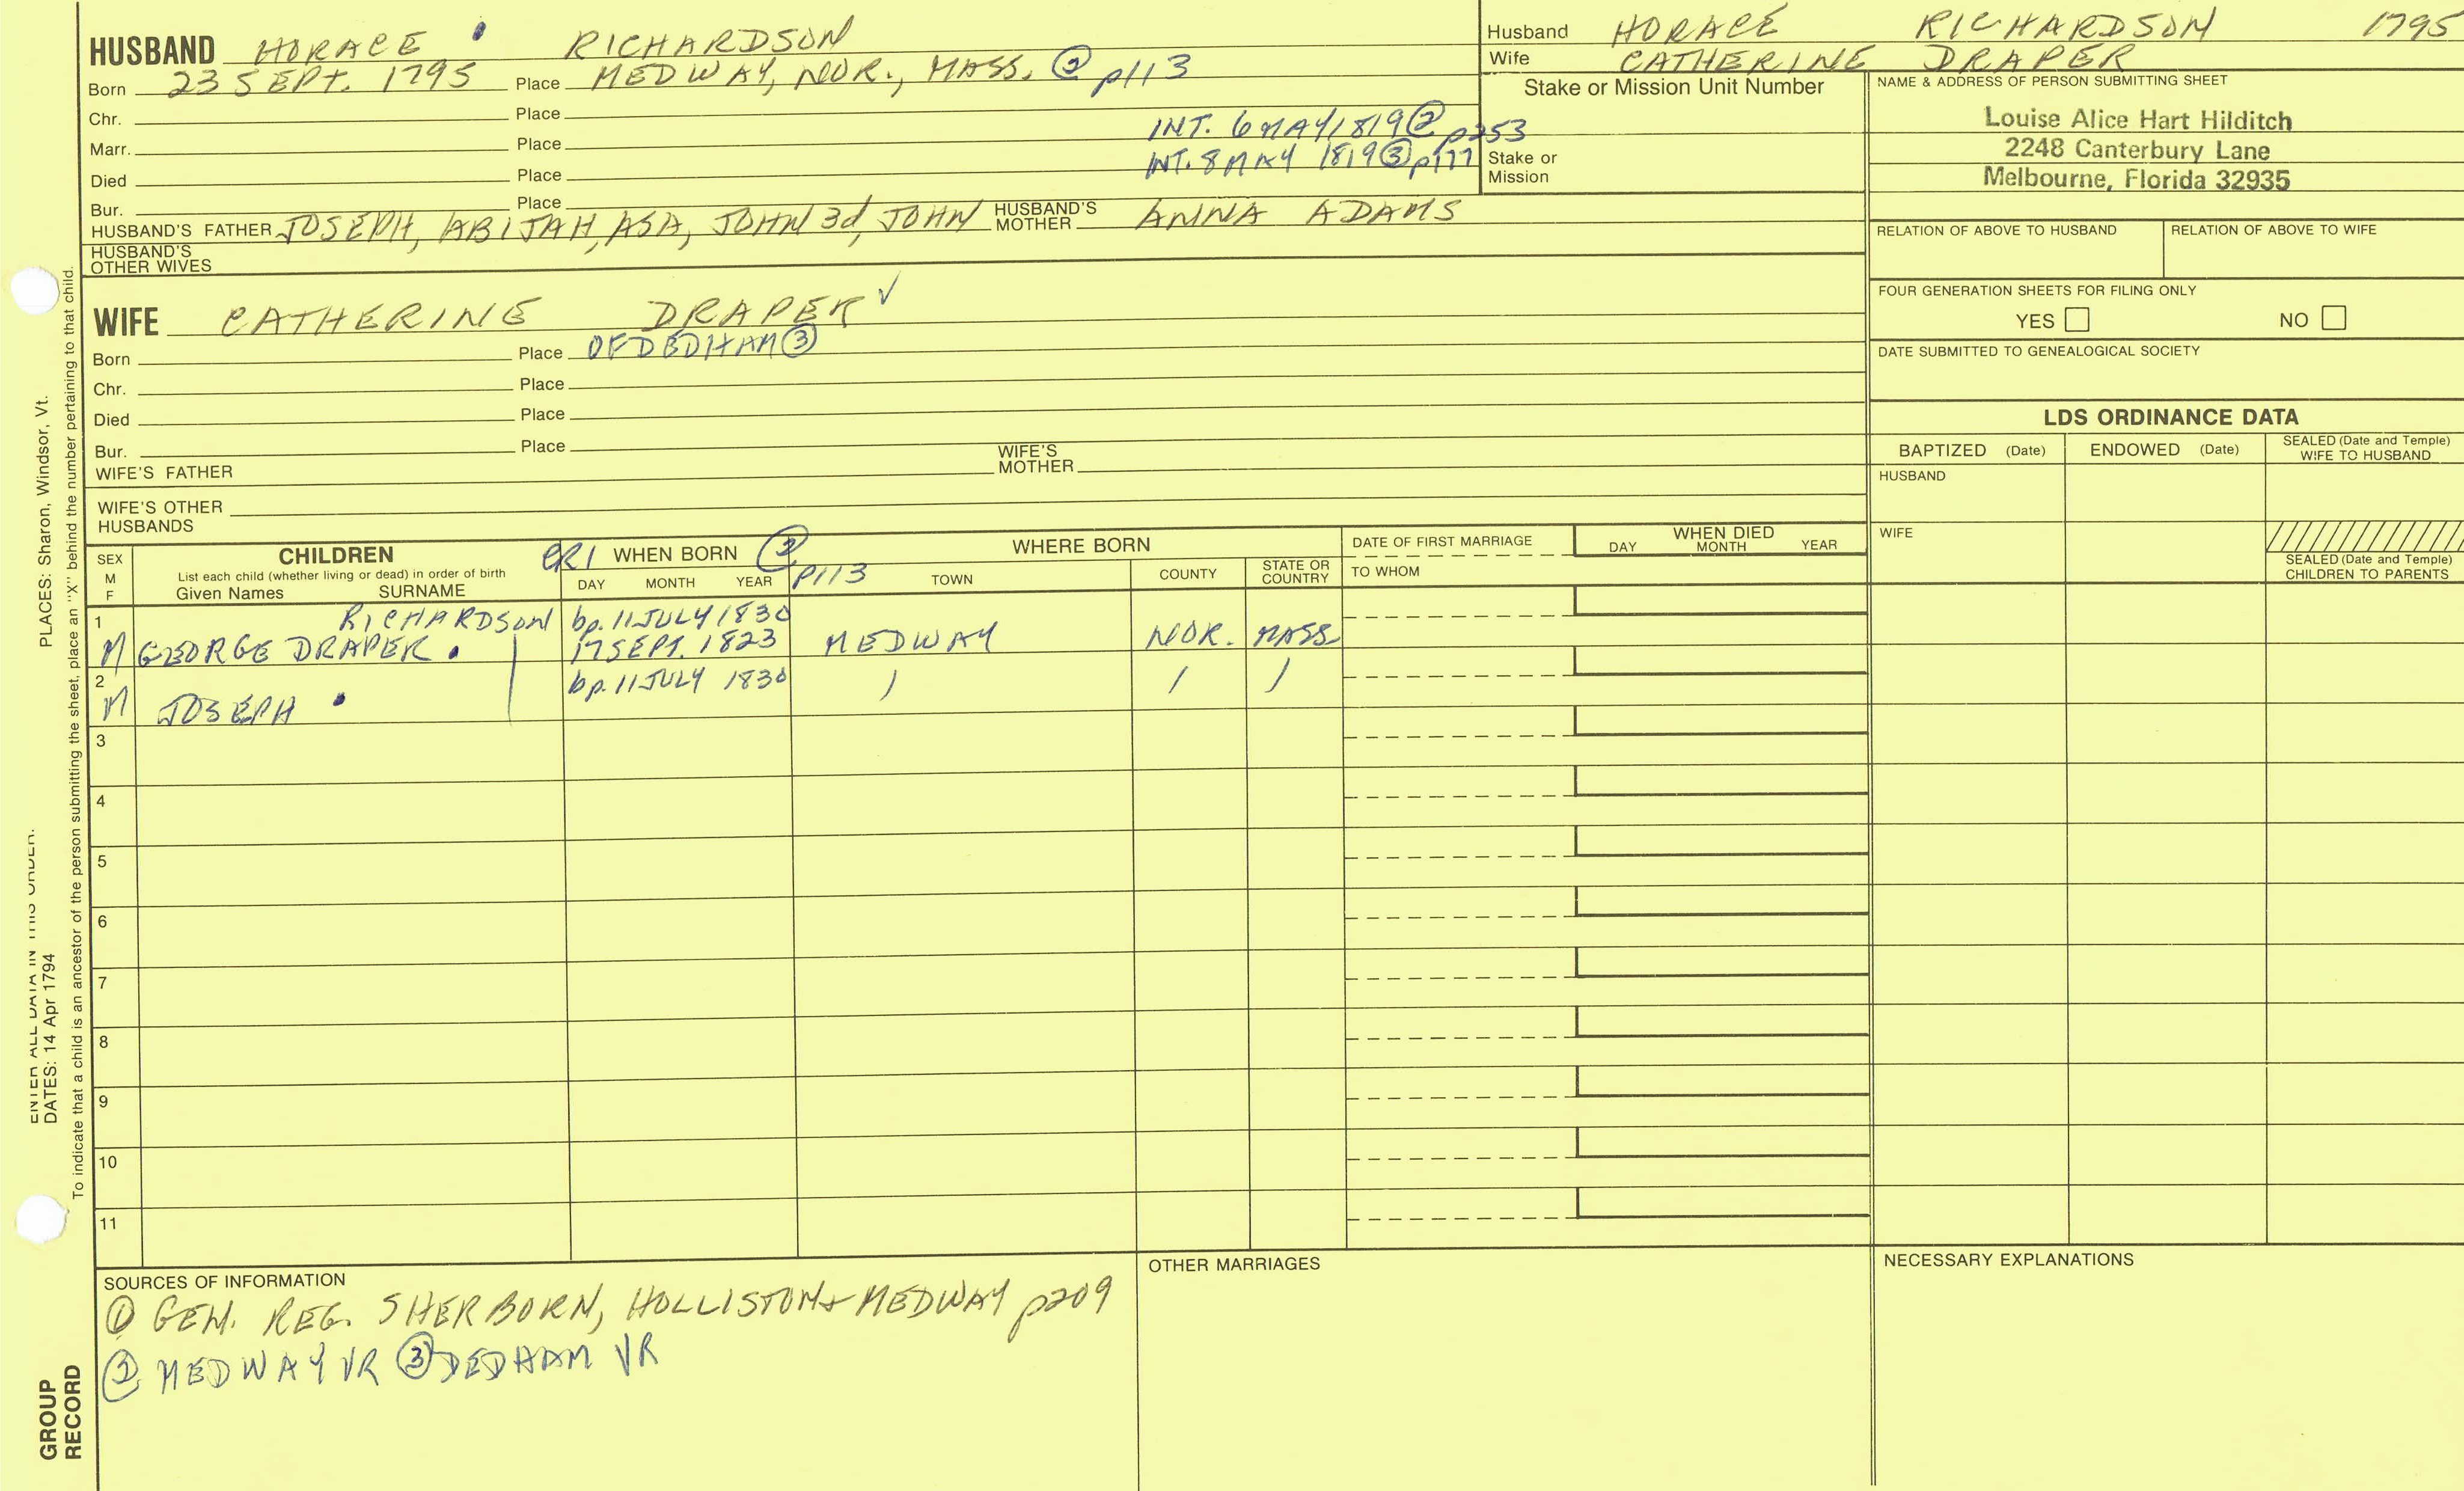 HUSBAND HORACE RICHARDSON
Born 23 SEPT. 1795 Place MEDWAY, NOR., MASS. ② p113
Chr. Place
INT. 6 MAY 1819 ② p253
Marr. Place
INT. 8 MAY 1819 ③ p177
Died Place
Bur. Place
HUSBAND'S FATHER JOSEPH, ABIJAH, ASA, JOHN 3d, JOHN HUSBAND'S MOTHER ANNA ADAMS
HUSBAND'S OTHER WIVES
WIFE CATHERINE DRAPER ✓
Born Place OF DEDHAM ③
Chr. Place
Died Place
Bur. Place
WIFE'S FATHER WIFE'S MOTHER
WIFE'S OTHER HUSBANDS
Husband HORACE RICHARDSON 1795
Wife CATHERINE DRAPER
Stake or Mission Unit Number
Stake or Mission
NAME & ADDRESS OF PERSON SUBMITTING SHEET
Louise Alice Hart Hilditch
2248 Canterbury Lane
Melbourne, Florida 32935
RELATION OF ABOVE TO HUSBAND RELATION OF ABOVE TO WIFE
FOUR GENERATION SHEETS FOR FILING ONLY
YES NO
DATE SUBMITTED TO GENEALOGICAL SOCIETY
LDS ORDINANCE DATA
BAPTIZED (Date) ENDOWED (Date) SEALED (Date and Temple) WIFE TO HUSBAND
HUSBAND
WIFE
SEALED (Date and Temple) CHILDREN TO PARENTS
SEX M F
CHILDREN
List each child (whether living or dead) in order of birth
Given Names SURNAME
CR1 WHEN BORN ② p113
DAY MONTH YEAR
WHERE BORN
TOWN COUNTY STATE OR COUNTRY
DATE OF FIRST MARRIAGE
TO WHOM
WHEN DIED
DAY MONTH YEAR
1 RICHARDSON bp. 11 JULY 1830
M GEORGE DRAPER 17 SEPT. 1823 MEDWAY NOR. MASS
2 bp. 11 JULY 1830
M JOSEPH
3
4
5
6
7
8
9
10
11
SOURCES OF INFORMATION
① GEN. REG. SHERBORN, HOLLISTON + MEDWAY p209
② MEDWAY VR ③ DEDHAM VR
OTHER MARRIAGES
NECESSARY EXPLANATIONS
ENTER ALL DATA IN THIS ORDER:
DATES: 14 Apr 1794 PLACES: Sharon, Windsor, Vt.
To indicate that a child is an ancestor of the person submitting the sheet, place an "X" behind the number pertaining to that child.
GROUP
RECORD